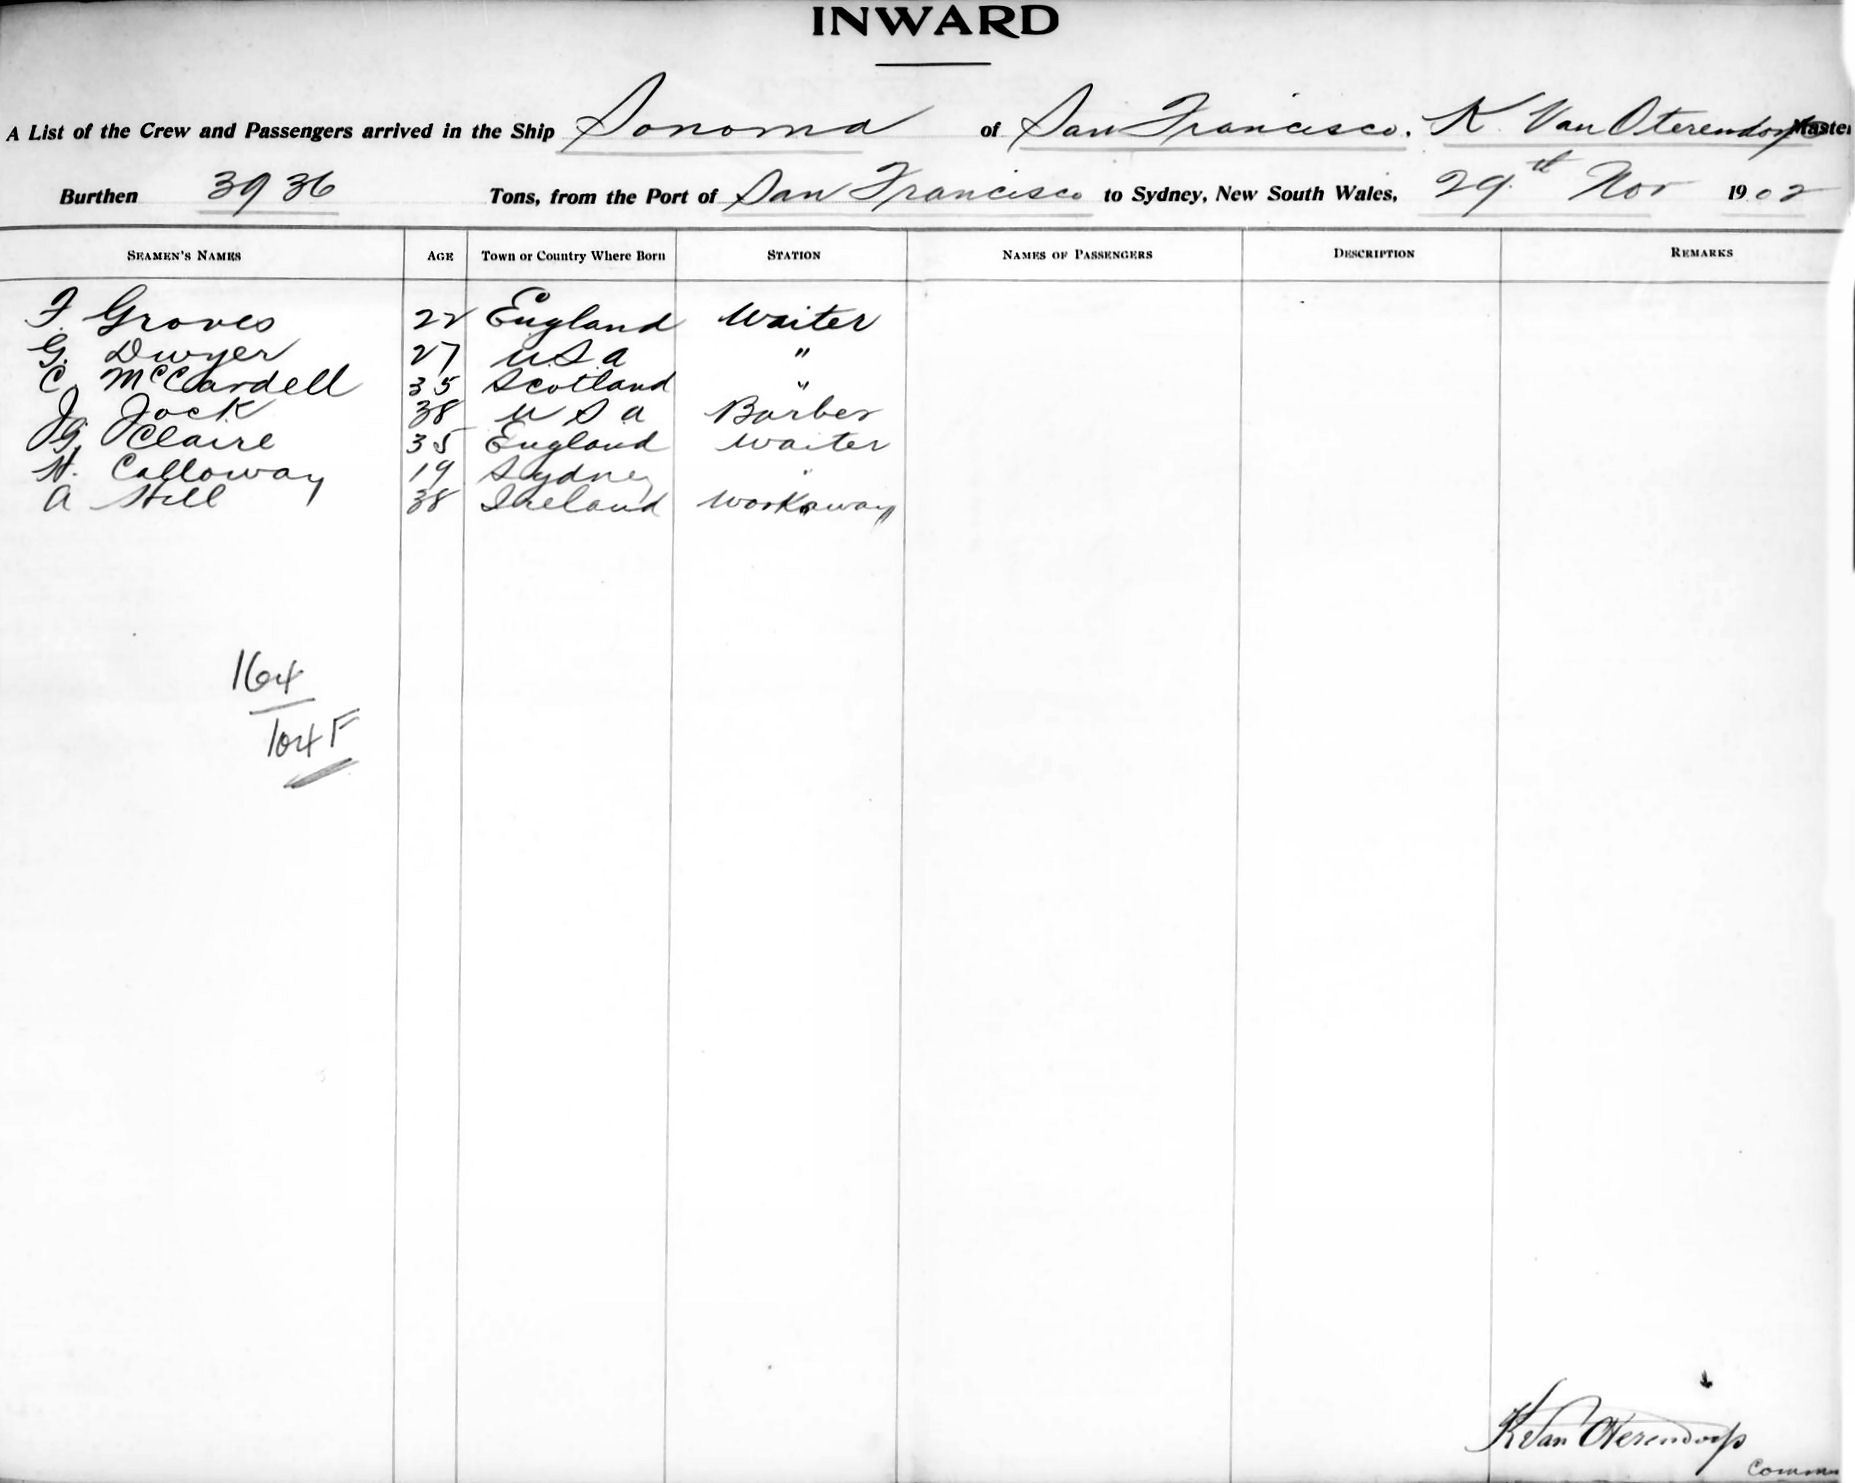 INWARD
A List of the Crew and Passengers arrived in the Ship Sonoma of San Francisco. K. Van Oterendorp Master
Burthen 3936 Tons, from the Port of San Francisco to Sydney, New South Wales, 29th Nov 1902
SEAMEN'S NAMES AGE Town or Country Where Born STATION NAMES OF PASSENGERS DESCRIPTION REMARKS
F. Groves 22 England Waiter
G. Dwyer 27 U.S.A "
C McCardell 35 Scotland "
J Jock 38 U S A Barber
J G. Claire 35 England Waiter
H. Calloway 19 Sydney "
A Hill 38 Ireland Workaway
164
104 F
K Van Oterendorp
Comm